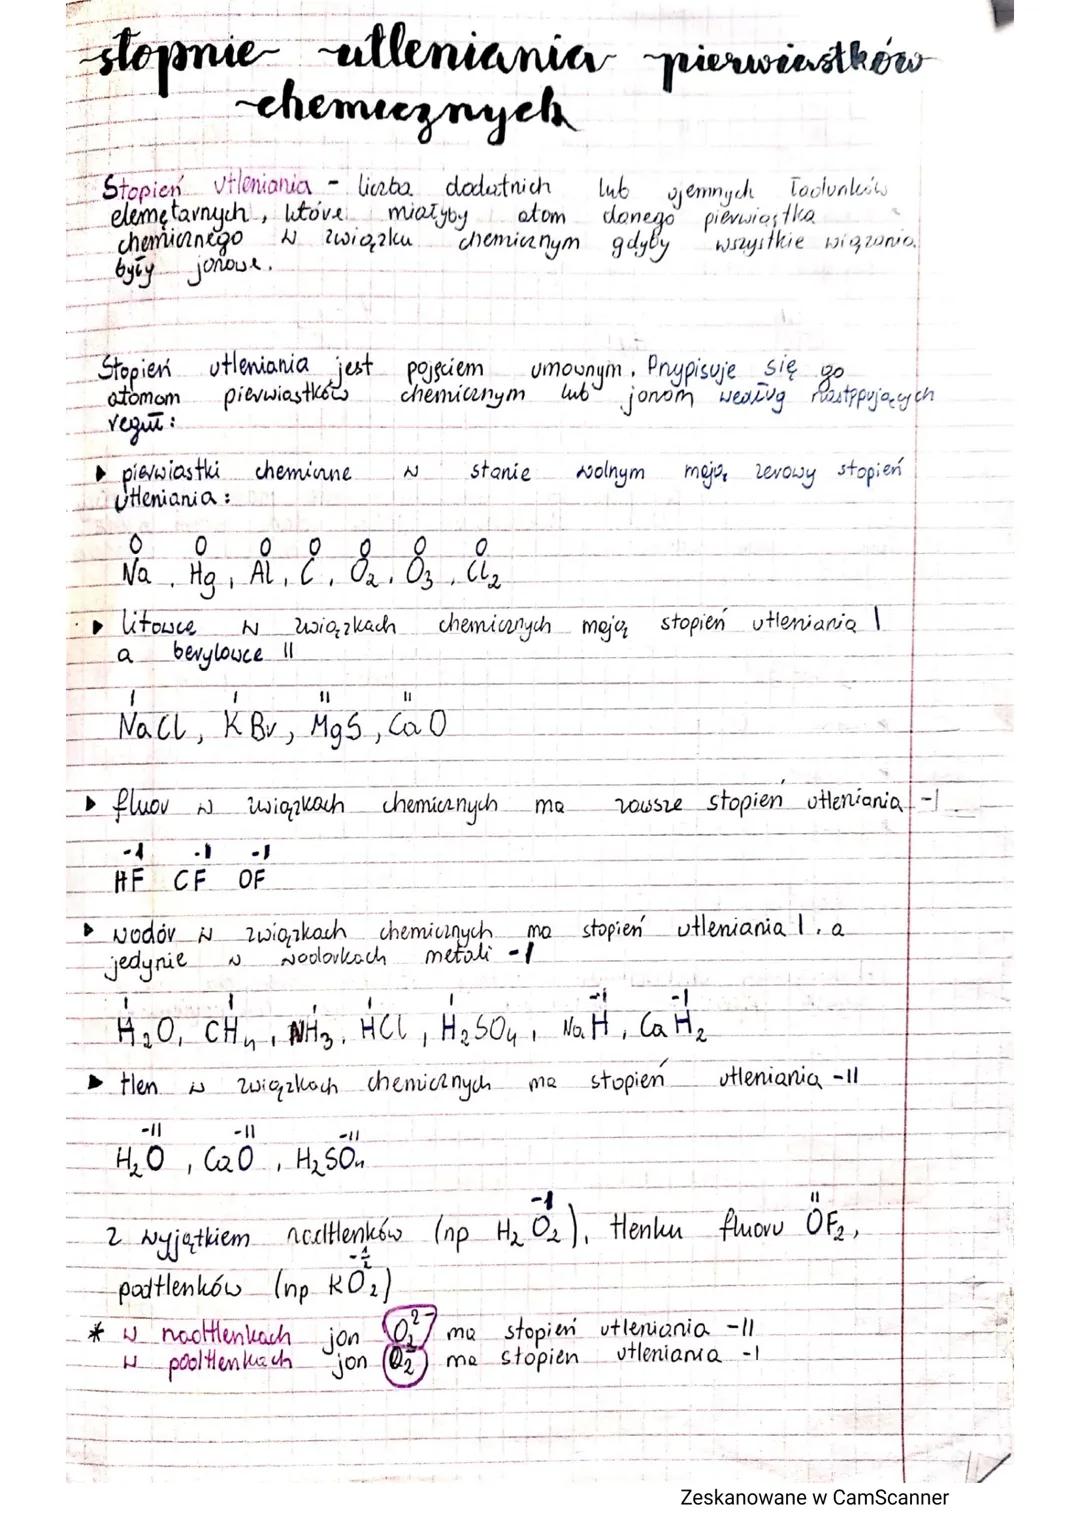 stopnie utleniania pierwiastków
chemicznych
Stopień utleniania - liczba dodatnich lub ujemnych ładunków
elemętarnych, które miałyby atom danego pierwiastka
chemicznego w związku chemicznym gdyby wszystkie wiązania
były jonowe.
Stopień utleniania jest pojęciem umownym. Przypisuje się go
atomom pierwiastków chemicznym lub jonom według następujących
reguł:
▸ pierwiastki chemiczne w stanie wolnym mają zerowy stopień
utleniania:
0 0 0 0 0 0 0
Na, Hg, Al, C, O₂, O₃, Cl₂
▸ litowce w związkach chemicznych mają stopień utleniania I
a berylowce II
I I II II
NaCl, KBr, MgS, CaO
▸ fluor w związkach chemicznych ma zawsze stopień utleniania -I
-I -I -I
HF CF OF
▸ wodór w związkach chemicznych ma stopień utleniania I, a
jedynie w wodorkach metali -I
I I I I I -I -I
H₂O, CH₄, NH₃, HCl, H₂SO₄, NaH, CaH₂
▸ tlen w związkach chemicznych ma stopień utleniania -II
-II -II -II
H₂O, CaO, H₂SO₄
-I II
z wyjątkiem nadtlenków (np H₂O₂), tlenku fluoru OF₂,
-½
podtlenków (np KO₂)
* w nadtlenkach jon O₂²⁻ ma stopień utleniania -II
w podtlenkach jon O₂⁻ ma stopień utleniania -I
Zeskanowane w CamScanner